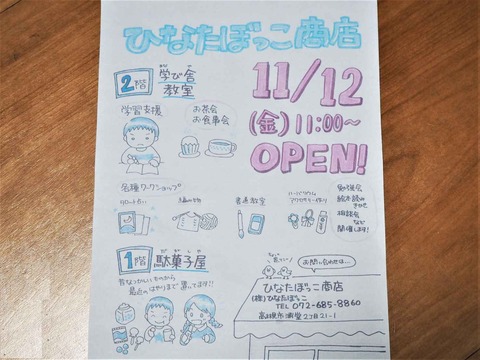 ひなたぼっこ商店
11/12
(金)11:00～
OPEN!
2階 学び舎
教室
学習支援
お茶会
お食事会
各種ワークショップ
タロート占い
編み物
書道教室
ハーバリウム
アクセサリー作り
勉強会
絵本読み
きかせ
相談会
など
開催します!
1階 駄菓子屋
だがしや
昔なつかしいものから
最近のはやりまで置いてます!!
お問い合わせは…
ひなたぼっこ商店
(株)ひなたぼっこ
TEL 072-685-8860
高槻市浦堂2丁目21-1